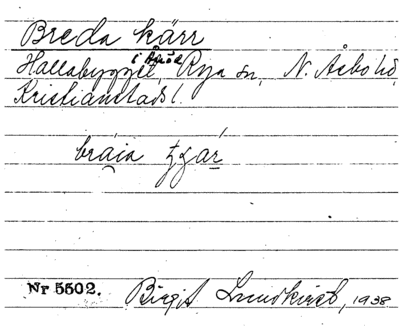 Breda kärr
Hallabygget, Rya sn, N. Åsbo hd,
Kristianstads l.
bráia
Nr 5502. Birgit Lundkvist, 1938